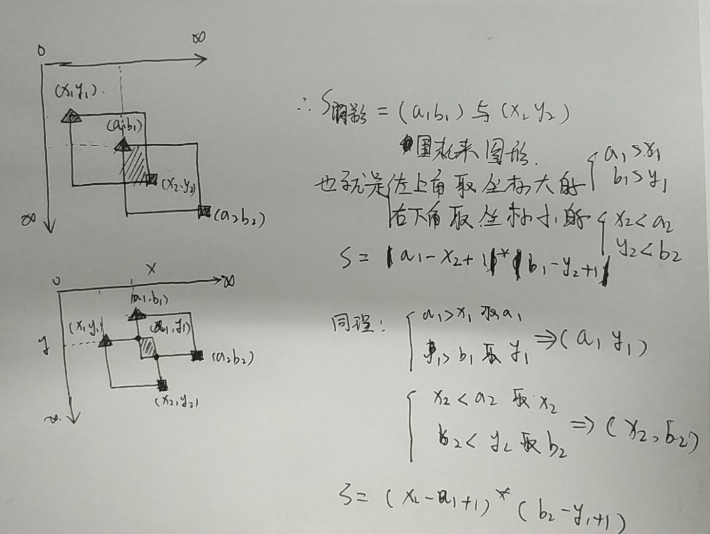 0 ∞
(x₁y₁)
(a₁b₁)
(x₂.y₂)
∞ (a₂b₂)
∴ S阴影 = (a₁b₁) 与 (x₂y₂)
围起来图形.
也就是 左上角取坐标大的 { a₁>x₁ b₁>y₁
右下角取坐标小的 { x₂<a₂ y₂<b₂
S = |a₁-x₂+1|*|b₁-y₂+1|
0 x ∞
(a₁.b₁)
(x₁y₁) (a₁,y₁)
y (a₂b₂)
(x₂,y₂)
∞
同理: { a₁>x₁ 取a₁
y₁>b₁ 取y₁ ⇒ (a₁ y₁)
{ x₂<a₂ 取x₂
b₂<y₂ 取b₂ ⇒ (x₂,b₂)
S = (x₂-a₁+1)*(b₂-y₁+1)